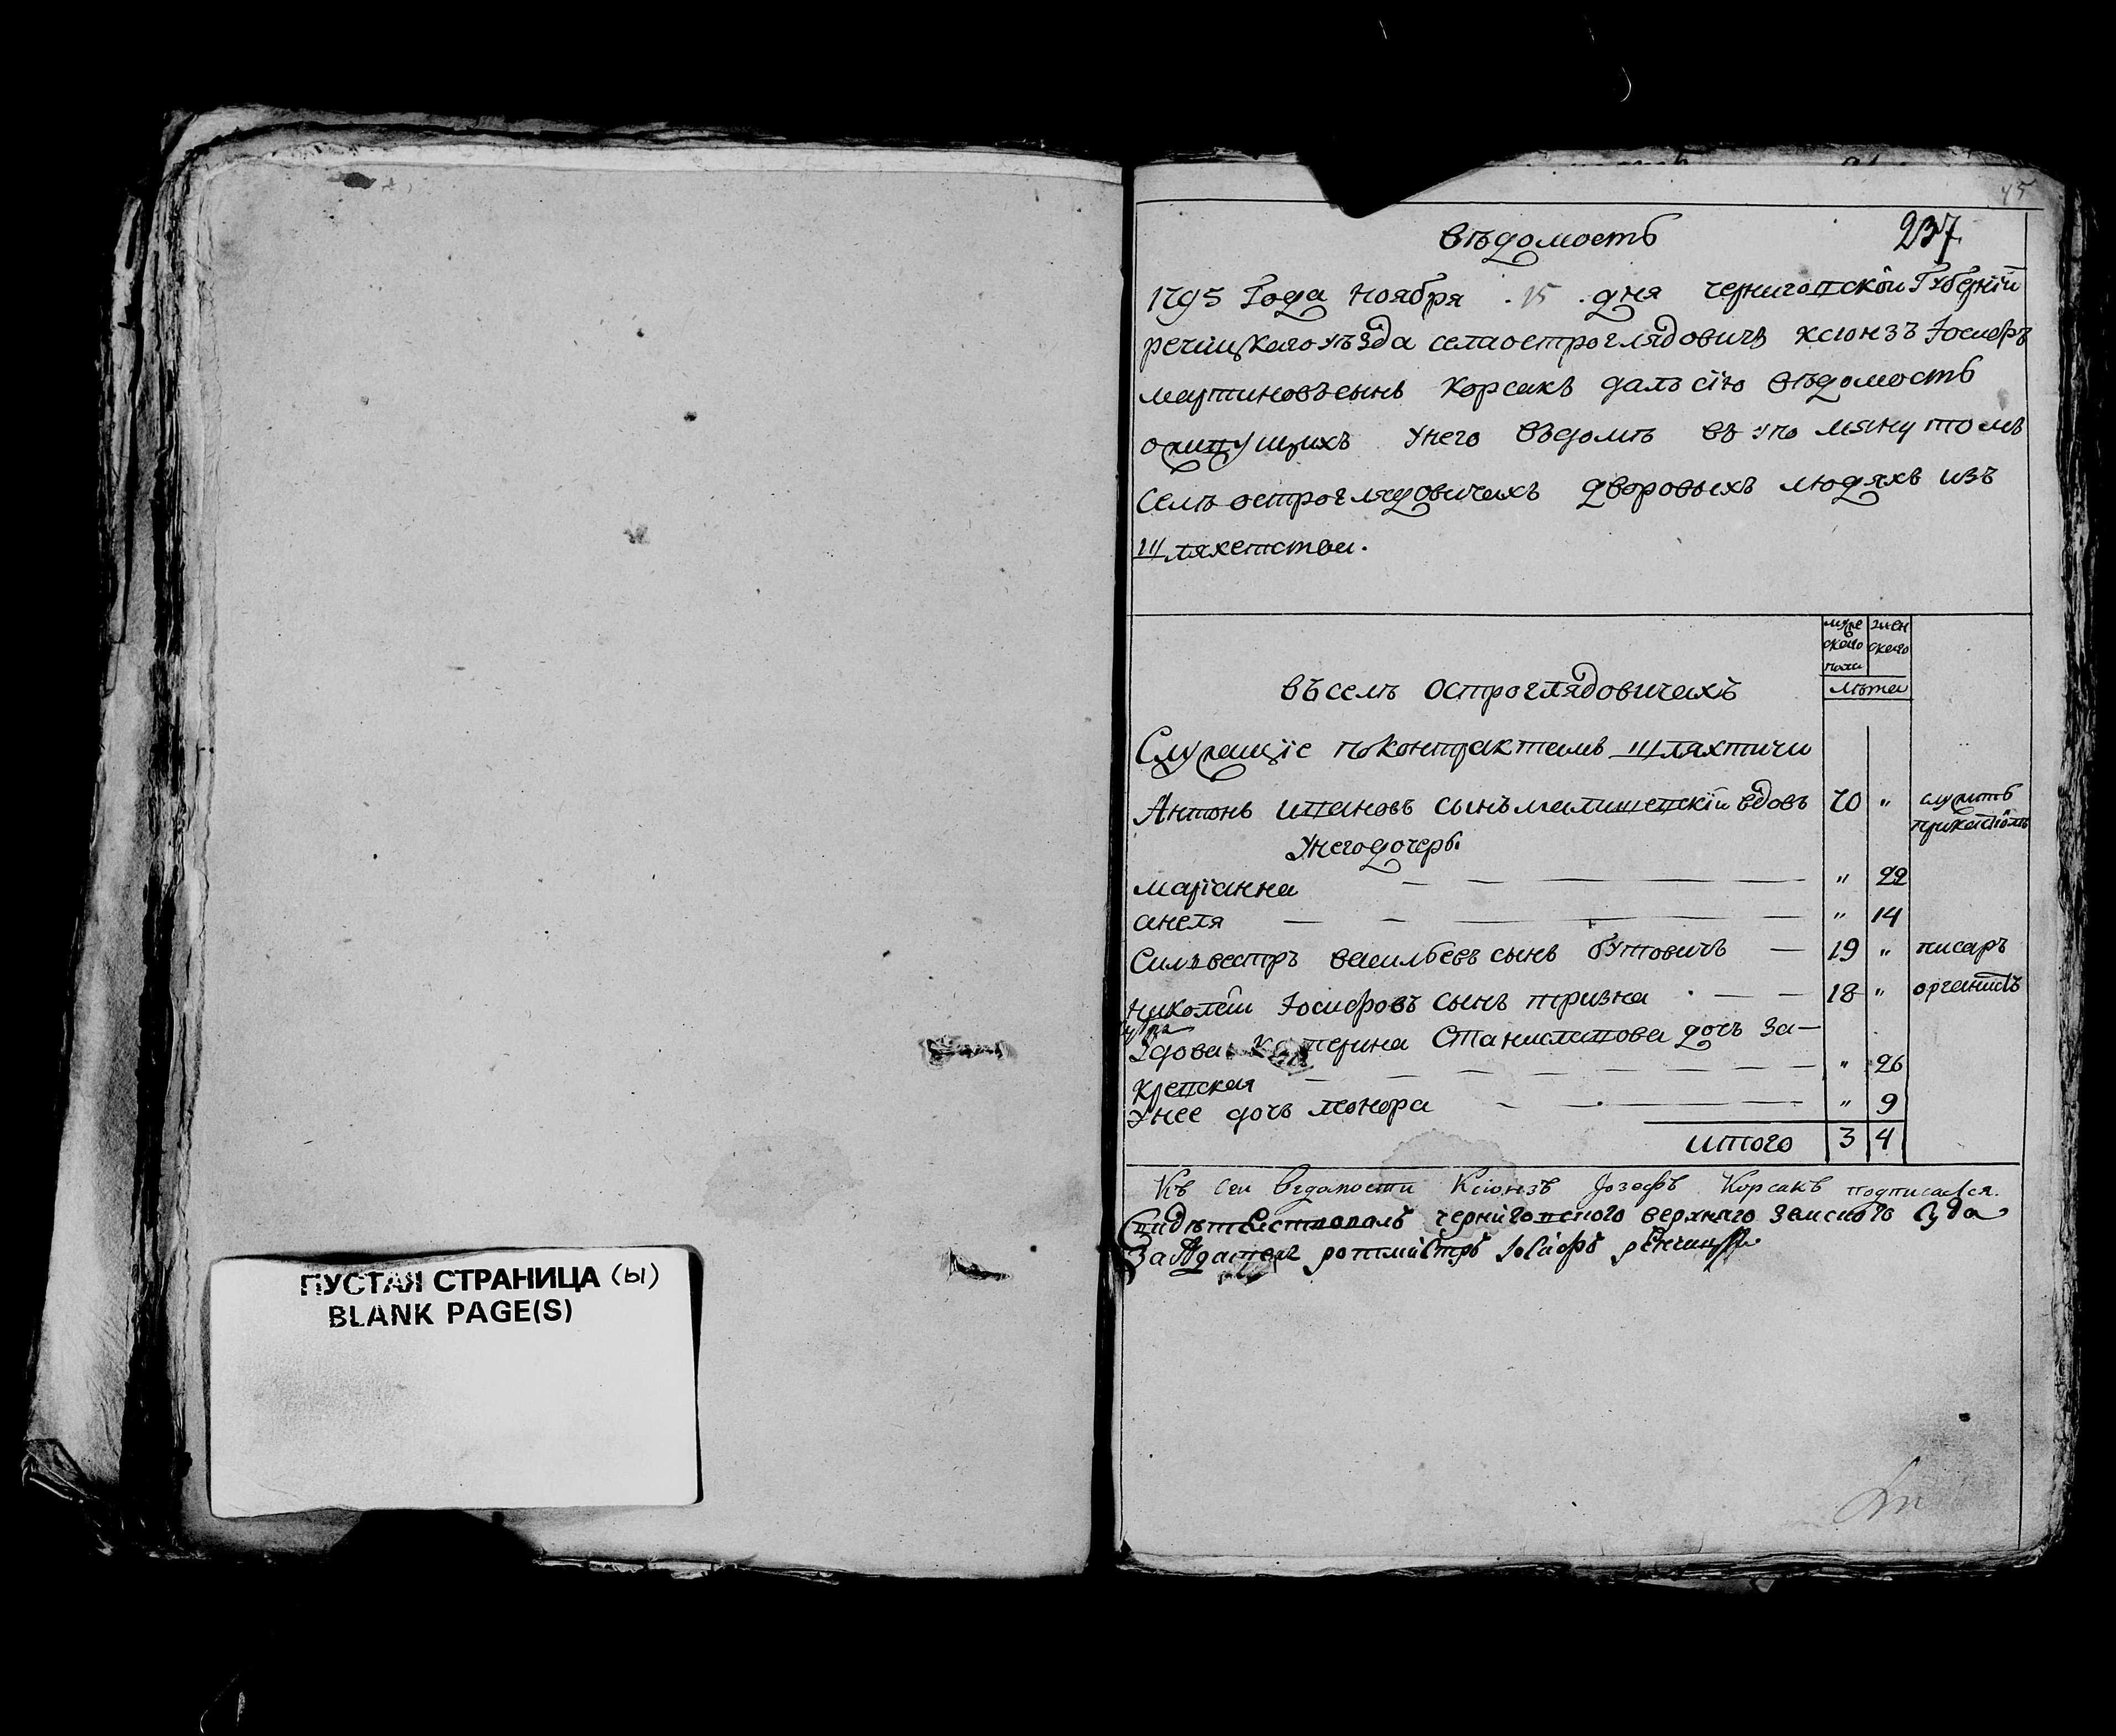 ПУСТАЯ СТРАНИЦА (ы)
BLANK PAGE(S)
45
237
Вѣдомость
1795 Года ноября 15 дня черниговской Губерніи
речицкого уѣзда села остроглядовичъ ксіонзъ Іосифъ
мартиновъ сынъ Корсакъ далъ сію вѣдомость
о живущихъ у него вѣдомѣ въ упомянутомъ
Селѣ остроглядовичахъ дворовыхъ людяхъ изъ
шляхетства.
мужескаго пола
женскаго
лѣта
въ селѣ остроглядовичахъ
Служащіе по контрактамъ шляхтичи
Антонъ ивановъ сынъ малишевскій вдовъ 70 " служитъ при костіолѣ
У него дочерѣ
маріанна — — — " 22
анеля — — — " 14
Силвестръ васильевъ сынъ бутовичъ — 19 " писаръ
николай Іосифовъ сынъ тризна — — 18 " органистъ
Вдова Катерина Станиславова дочъ За-
кревская — — — " 26
У нее дочъ леонора — — " 9
итого 3 4
Къ сей ведамости Ксіонзъ Јозефъ Корсакъ подписался.
Свидѣтелствовалъ черниговского верхнаго земского Суда
Заседатель ротмистръ Іосифъ